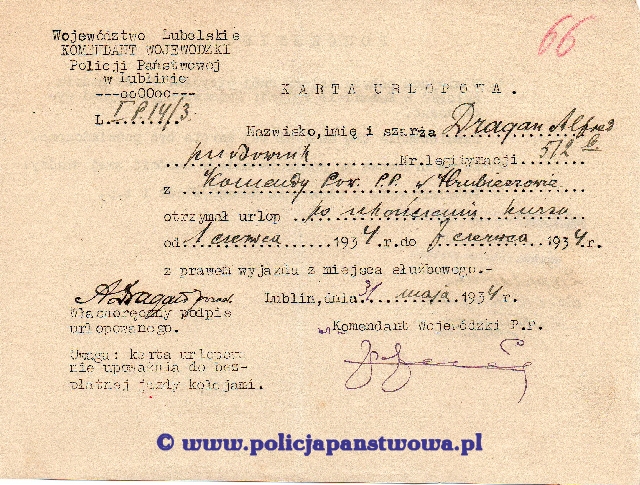 Województwo Lubelskie
KOMENDANT WOJEWÓDZKI
Policji Państwowej
w Lublinie
---ooOOoo---
L. I.P.14/3
66
KARTA URLOPOWA.
Nazwisko, imię i szarża Dragan Alfred
przodownik Nr. legitymacji 512
z Komendy Pow. P.P. w Hrubieszowie
otrzymał urlop po ukończeniu kursu
od 1 czerwca 1934 r. do 7 czerwca 1934 r.
z prawem wyjazdu z miejsca służbowego.-
Lublin, dnia 31 maja 1934 r.
A Dragan przod.
Własnoręczny podpis
urlopowanego.
Komendant Wojewódzki P.P.
Uwaga: karta urlopow
nie upoważnia do bez-
płatnej jazdy kolejami.
© www.policjapanstwowa.pl